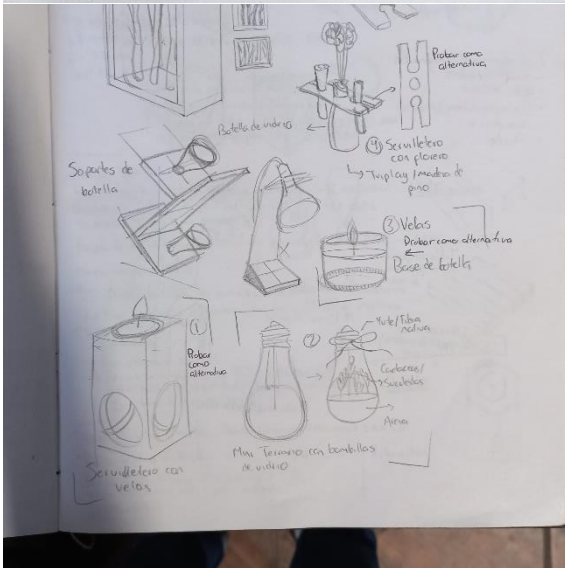 Probar como
alternativa
Botella de vidrio
④ Servilletero
con florero
Triplay/madera de
pino
Soportes de
botella
③ Velas
Probar como alternativa
Base de botella
①
Probar
como
alternativa
②
Yute/Fibra
nativa
Cactaceas/
Suculentas
Arena
Mini Terrario con bombillas
de vidrio
Servilletero con
velas